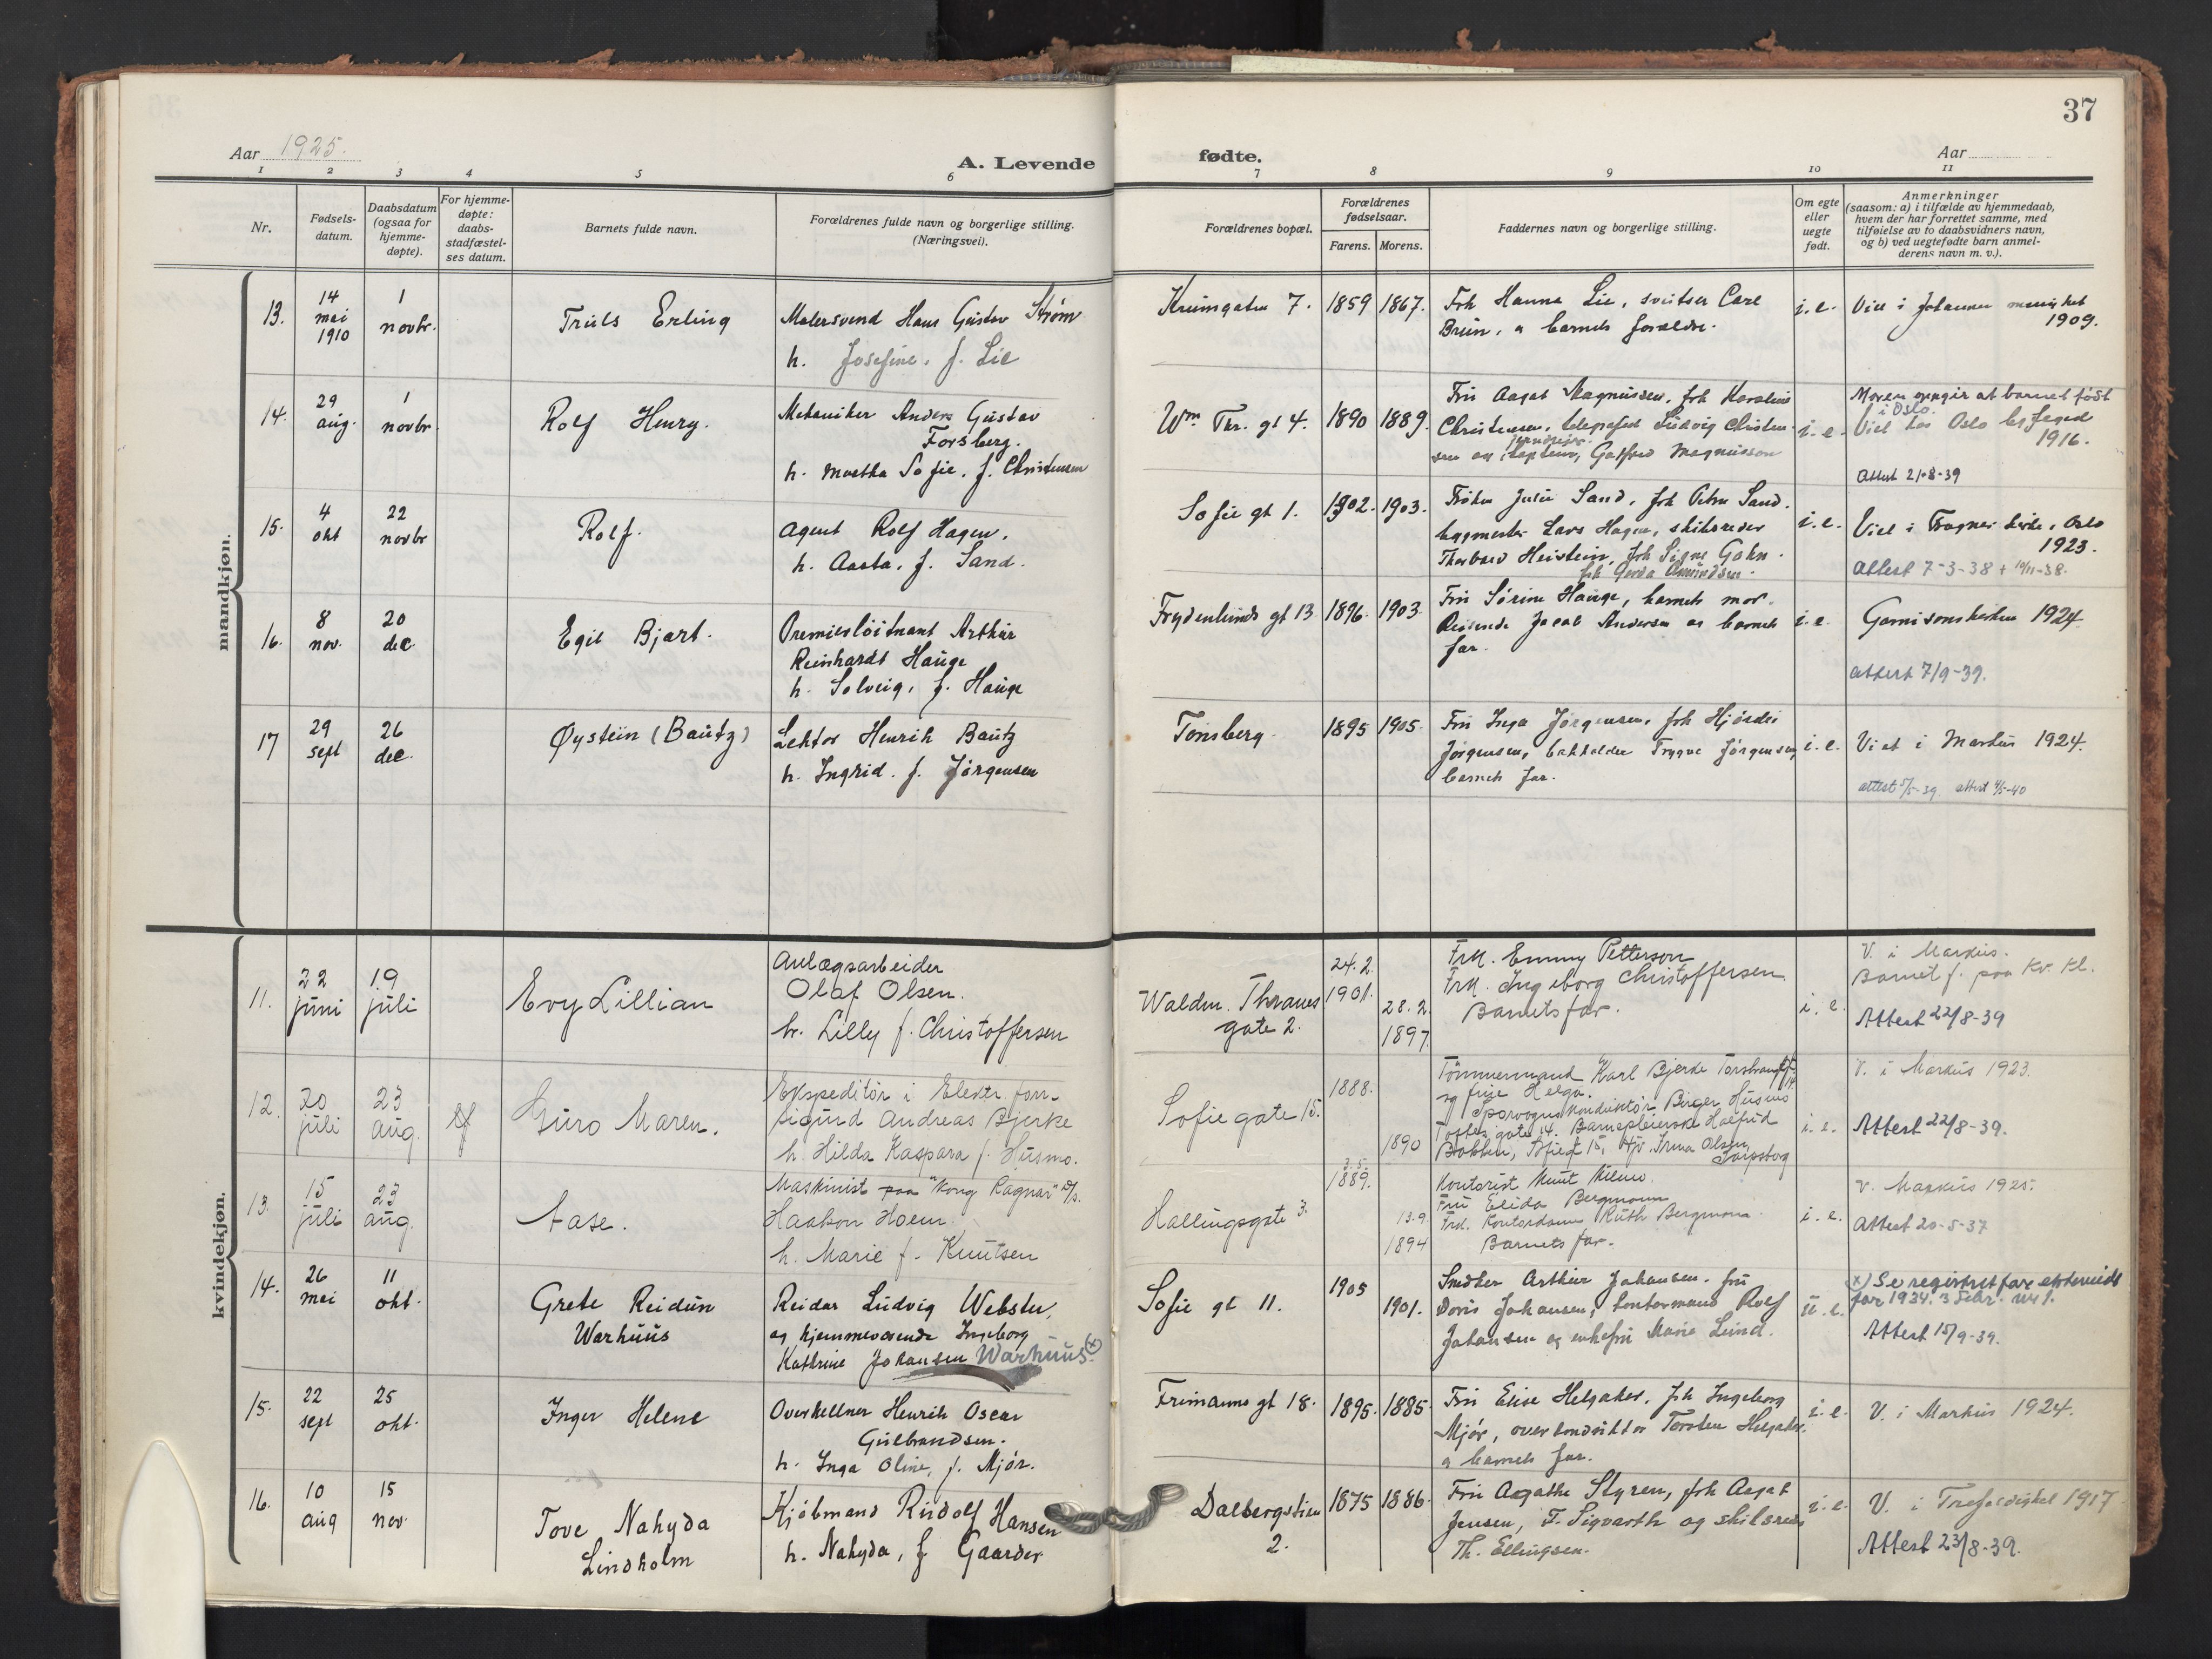 37
Aar 1925.
A. Levende
fødte.
Aar
1 2 3 4 5 6 7 8 9 10 11
Nr.
Fødsels-
datum.
Daabsdatum
(ogsaa for
hjemme-
døpte).
For hjemme-
døpte:
daabs-
stadfæstel-
ses datum.
Barnets fulde navn.
Forældrenes fulde navn og borgerlige stilling.
(Næringsvei).
Forældrenes bopæl.
Forældrenes
fødselsaar.
Farens. Morens.
Faddernes navn og borgerlige stilling.
Om egte
eller
uegte
født.
Anmerkninger
(saasom: a) i tilfælde av hjemmedaab,
hvem der har forrettet samme, med
tilføielse av to daabsvidners navn,
og b) ved uegtefødte barn anmel-
derens navn m. v.).
mandkjøn.
13.
14
mai
1910
1
novbr.
Truls Erling
Malersvend Hans Gustav Strøm
h. Josefine, f. Lie
Krumgaten 7.
1859 1867.
Frk Hanna Lie, Carl
Bruun, o barnets forældre.
i. e.
Viet i Johannes menighet
1909.
14.
29
aug.
1
novbr
Rolf Henry.
Mekaniker Anders Gustav
Forsberg.
h. Martha Sofie, f. Christensen
Wm Thr. gt 4.
1890 1889.
Fru Aagot Magnussen, frk Karoline
Christensen, Ludvig Christen-
sen Magnusson
i. e.
Moren opgir at barnet født
i Oslo.
Viet hos Oslo byfoged
1916.
Attest 21-8-39
15.
4
okt
22
novbr
Rolf.
Agent Rolf Hagen,
h. Aasta, f. Sand.
Sofie gt 1.
1902. 1903.
Frøken Julie Sand, frk Petra Sand,
bygmester Lars Hagen, skibsreder
Thorbard Heistein, frk Signe Gahn.
frk Gerda Amundsen.
i. e.
Viet i Frogner kirke, Oslo
1923.
Attest 7-3-38 + 19/11-38.
16.
8
nov.
20
dec.
Egil Bjart.
Premierløitnant Arthur
Reinhardt Hauge
h. Solveig, f. Hauge
Frydenlunds gt 13
1896. 1903.
Fru Sørine Hauge, barnets mor.
Reisende Jacob Andersen og barnets
far.
i. e.
Garnisonskirken 1924.
attest 7/9-39.
17
29
sept
26
dec.
Øystein (Bautz)
Lektor Henrik Bautz
h. Ingrid, f. Jørgensen
Tønsberg.
1895 1905.
Fru Inga Jørgensen, frk Hjørdis
Jørgensen, bokholder Trygve Jørgensen,
barnets far.
i. e.
Viet i Markus 1924.
attest 5/5-39. attest 4/5-40
kvindekjøn.
11.
22
juni
19
juli
Evy Lillian
Anlægsarbeider
Olaf Olsen.
h. Lilly f. Christoffersen
Waldm. Thranes
gate 2.
24.2.
1901.
28.2.
1897.
Frk. Emmy Petterson
Frk. Ingeborg Christoffersen
Barnets far.
i. e.
V. i Markus.
Barnet f. paa Kv. kl.
Attest 22/8-39
12.
20
juli
23
aug.
Guro Maren.
Ekspeditør i Elektr. forr.
Sigurd Andreas Bjerke
h. Hilda Kaspara f. Husmo.
Sofie gate 15.
1888.
1890
Tømmermand Karl Bjerke
og frue Helga.
Sporvognskonduktør Birger Husmo
Toftes gate 14. Barnepleierske Halfrid
Bakken, Sofiegt 15, Irma Olsen,
Sarpsborg
i. e.
V. i Markus 1923.
Attest 22/8-39.
13.
15
juli
23
aug.
Aase.
Maskinist paa "Kong Ragnar" D/s.
Haakon Hoem.
h. Marie f. Knutsen
Hallingsgate 3.
3.5.
1889.
13.9.
1894
Kontorist Knut
Fru Elida Bergmann
Frk. Kontordame Ruth Bergmann.
Barnets far.
i. e.
V. Markus 1925.
Attest 20-5-37
14.
26
mai
11
okt.
Grete Reidun
Warhuus
Reidar Ludvig Webster,
og hjemmeværende Ingeborg
Kathrine Johansen Warhuus (x)
Sofie gt 11.
1905
1901.
Snedker Arthur Johansen, fru
Doris Johansen, kontormand Rolf
Johansen og enkefru Marie Lund.
u. e.
(x) Se registret for
for 1934. 3 febr. nr 1.
Attest 15/9-39.
15.
22
sept
25
okt.
Inger Helene
Overkellner Henrik Oscar
Gulbrandsen.
h. Inga Oline, f. Mjør.
Frimanns gt 18.
1895. 1885.
Fru Elise Helgaker, frk Ingeborg
Mjør, overkonduktør Torsten Helgaker
o barnets far.
i. e.
V. i Markus 1924.
16.
10
aug
15
nov.
Tove Nahyda
Lindholm
Kjøbmand Rudolf Hansen
h. Nahyda, f. Gaarder
Dalbergstien
2.
1875 1886.
Fru Aagathe Styren, frk Aagot
Jensen, F. Sigvarth og skibsreder
Th. Ellingsen.
i. e.
V. i Trefoldighet 1917
Attest 23/8-39.